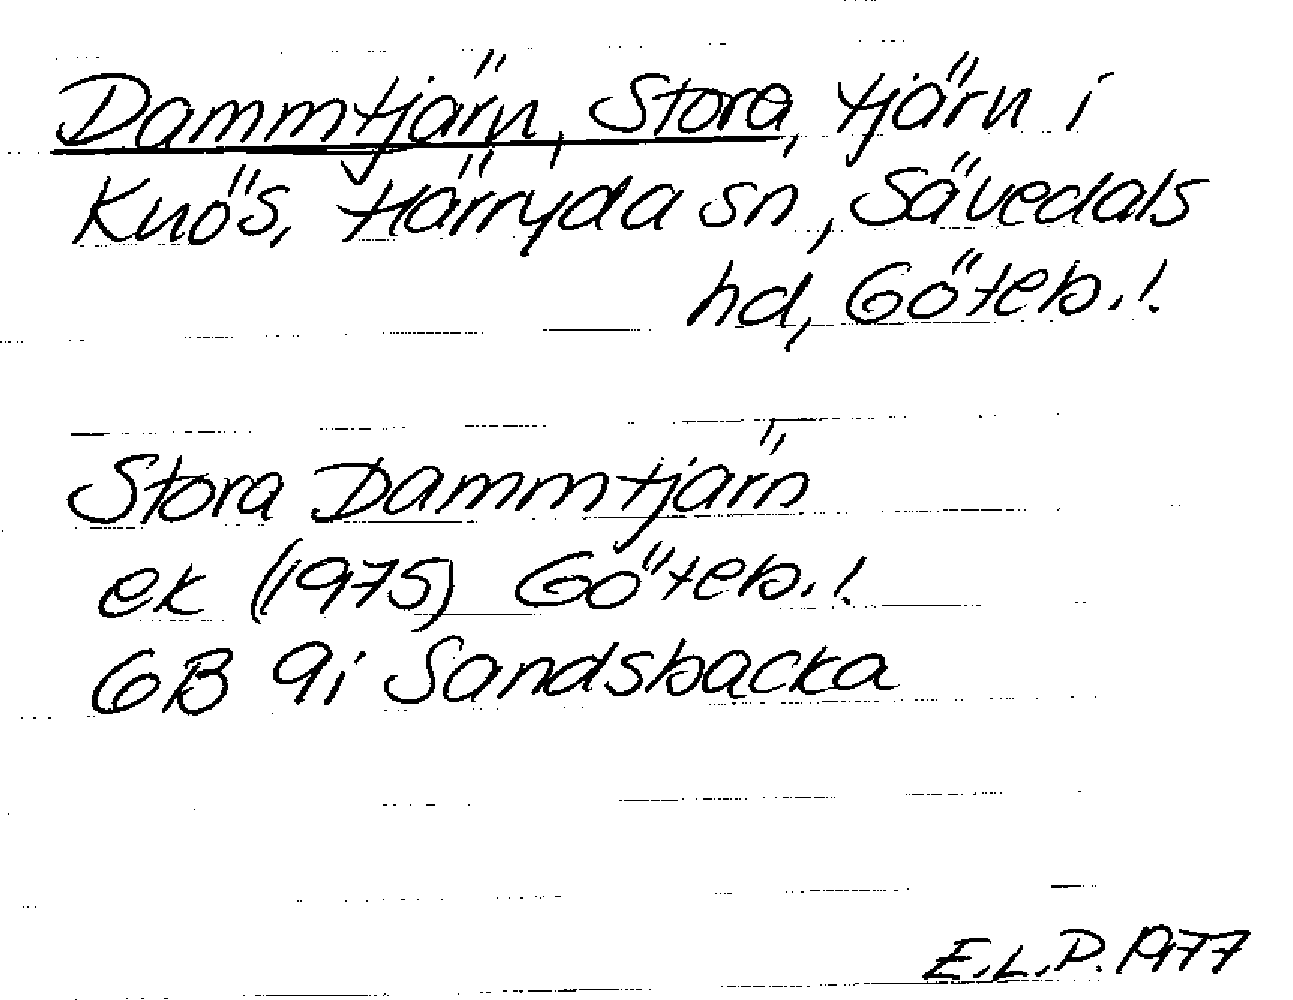 Dammtjärn, Stora, tjärn i
Knös, Härryda sn, Sävedals
hd, Göteb. l.
Stora Dammtjärn
ek (1975) Göteb. l.
6B 9i Sandsbacka
E.L.P. 1977